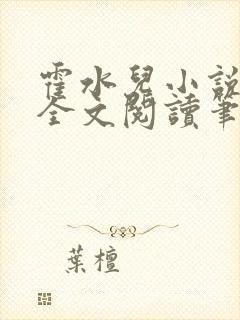 霍水兒小說
全文閱讀筆
葉檀